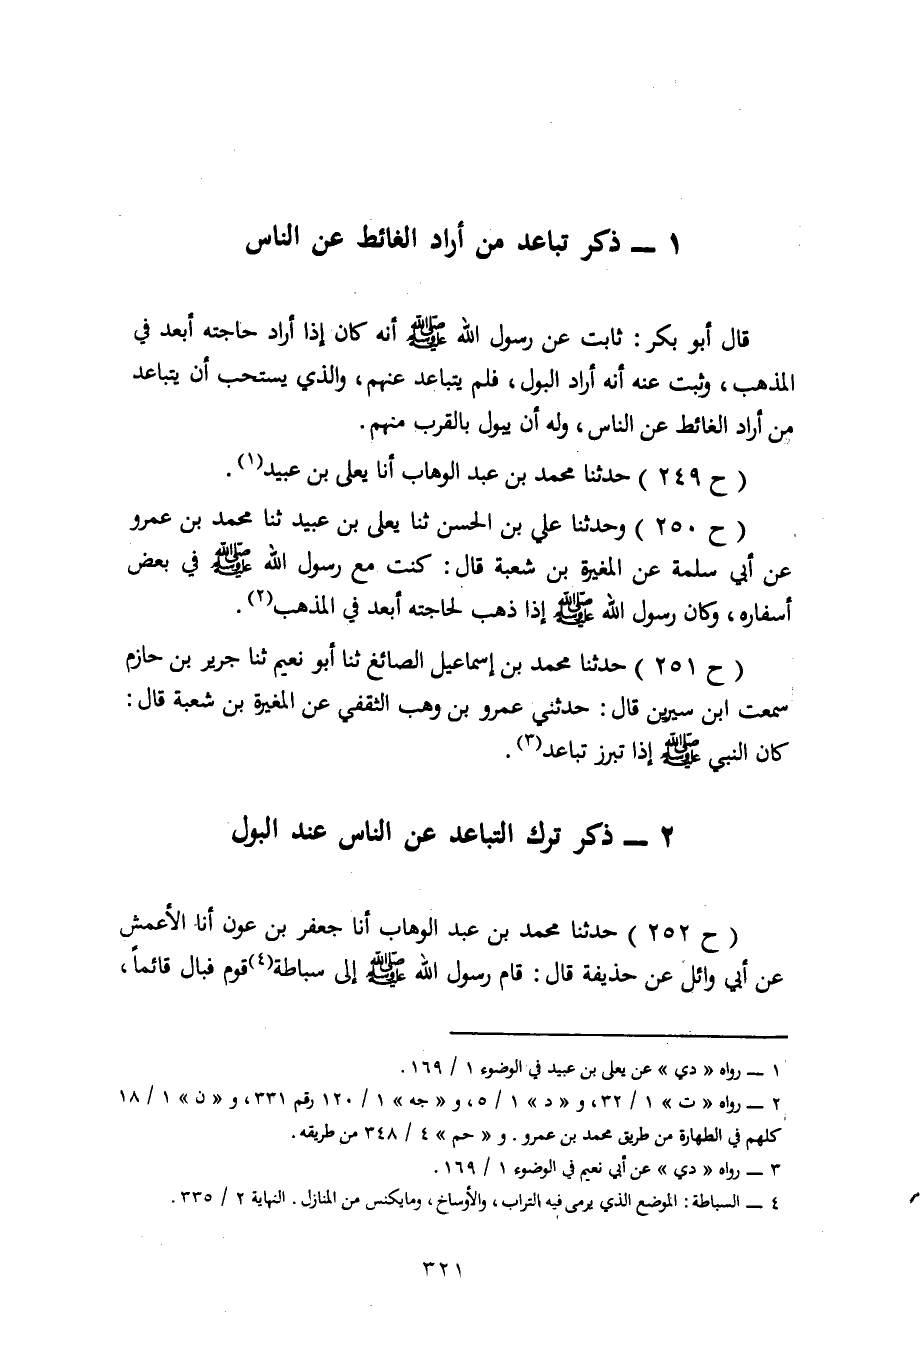 ١ ــ ذكر تباعد من أراد الغائط عن الناس
قال أبو بكر : ثابت عن رسول الله ﷺ أنه كان إذا أراد حاجته أبعد في
المذهب ، وثبت عنه أنه أراد البول ، فلم يتباعد عنهم ، والذي يستحب أن يتباعد
من أراد الغائط عن الناس ، وله أن يبول بالقرب منهم .
( ح ٢٤٩ ) حدثنا محمد بن عبد الوهاب أنا يعلى بن عبيد(١) .
( ح ٢٥٠ ) وحدثنا علي بن الحسن ثنا يعلى بن عبيد ثنا محمد بن عمرو
عن أبي سلمة عن المغيرة بن شعبة قال : كنت مع رسول الله ﷺ في بعض
أسفاره ، وكان رسول الله ﷺ إذا ذهب لحاجته أبعد في المذهب(٢) .
( ح ٢٥١ ) حدثنا محمد بن إسماعيل الصائغ ثنا أبو نعيم ثنا جرير بن حازم
سمعت ابن سيرين قال : حدثني عمرو بن وهب الثقفي عن المغيرة بن شعبة قال :
كان النبي ﷺ إذا تبرز تباعد(٣) .
٢ ــ ذكر ترك التباعد عن الناس عند البول
( ح ٢٥٢ ) حدثنا محمد بن عبد الوهاب أنا جعفر بن عون أنا الأعمش
عن أبي وائل عن حذيفة قال : قام رسول الله ﷺ إلى سباطة(٤) قوم فبال قائماً ،
١ ــ رواه « دي » عن يعلى بن عبيد في الوضوء ١ / ١٦٩ .
٢ ــ رواه « ت » ١ / ٣٢ ، و « د » ١ / ٥ ، و « جه » ١ / ١٢٠ رقم ٣٣١ ، و « ن » ١ / ١٨
كلهم في الطهارة من طريق محمد بن عمرو . و « حم » ٤ / ٣٤٨ من طريقه .
٣ ــ رواه « دي » عن أبي نعيم في الوضوء ١ / ١٦٩ .
٤ ــ السباطة : الموضع الذي يرمى فيه التراب ، والأوساخ ، ومايكنس من المنازل . النهاية ٢ / ٣٣٥ .
٣٢١